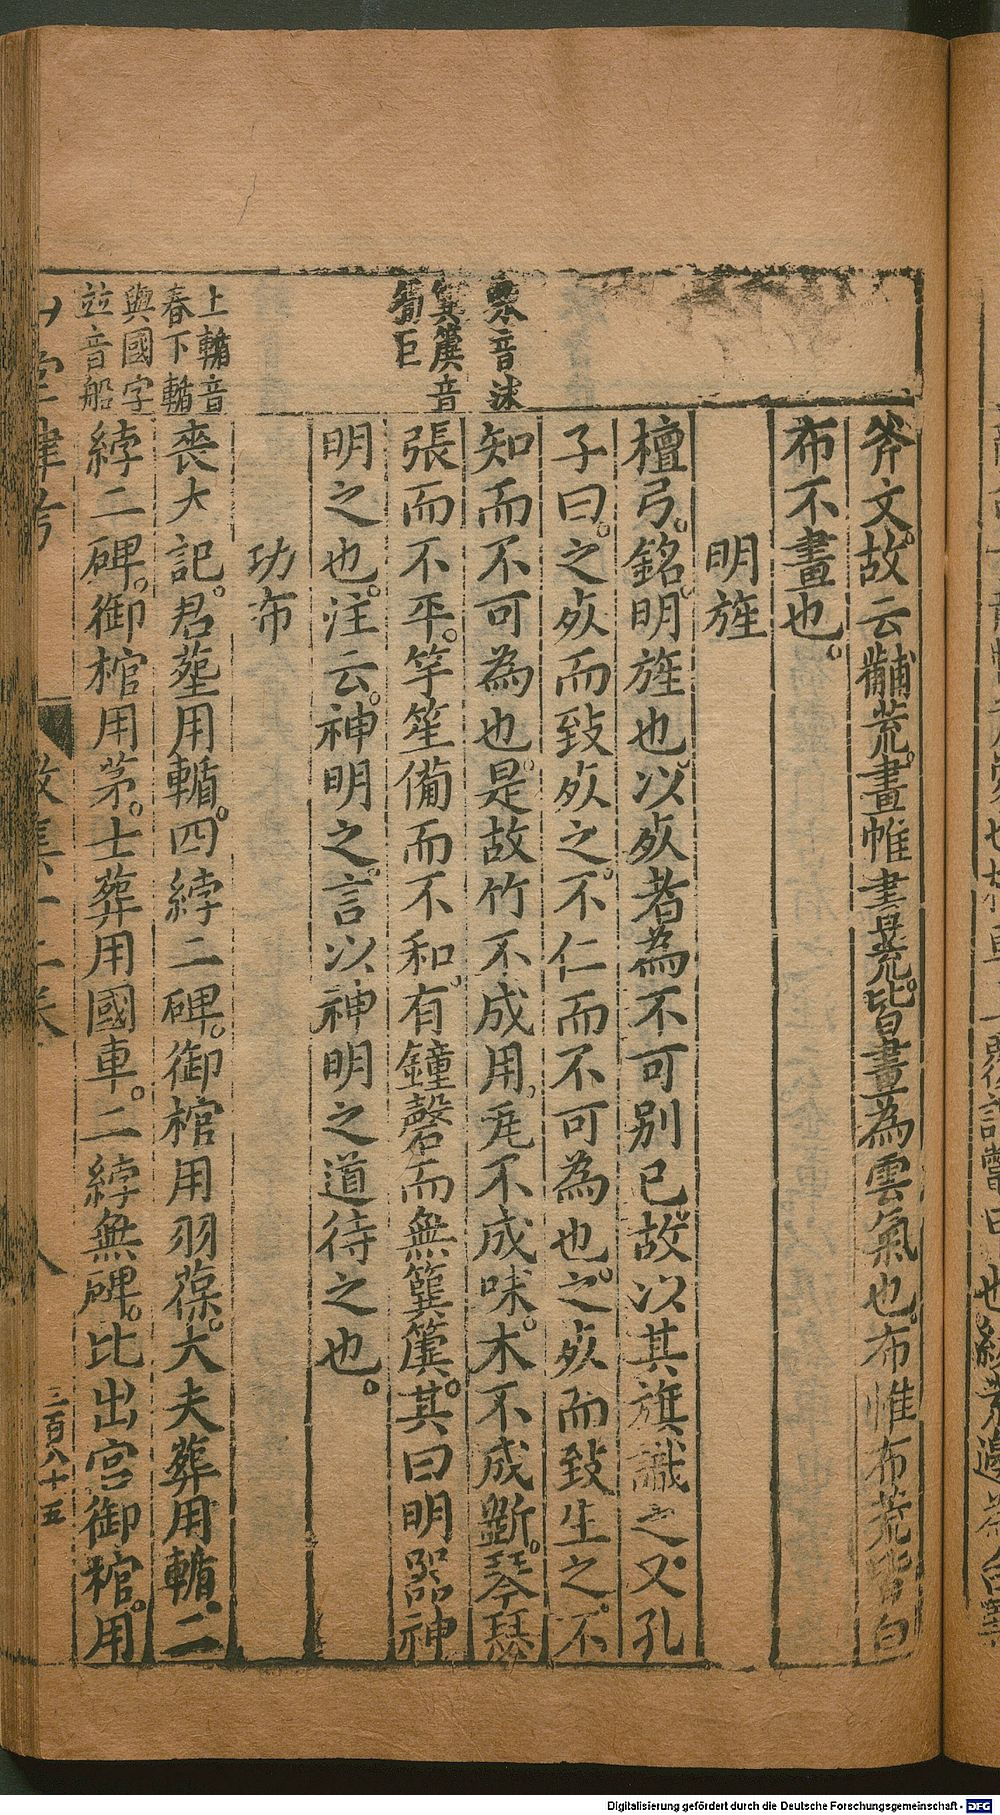 斧文故云黼荒畫帷畫荒皆畫為雲氣也布帷布荒皆白
布不畫也
明旌
檀弓銘明旌也以死者為不可別已故以其旗識之又孔
子曰之死而致死之不仁而不可為也之死而致生之不
知而不可為也是故竹不成用瓦不成味木不成斲琴瑟
張而不平竽笙備而不和有鐘磬而無簨簴其曰明器神
明之也注云神明之言以神明之道待之也
功布
喪大記君塟用輴四綍二碑御棺用羽葆大夫葬用輴二
綍二碑御棺用茅士葬用國車二綍無碑比出宮御棺用
味音沬
簨簴音
筍巨
上輴音
春下輴
與國字
並音船
卷
八
三百八十五
Digitalisierung gefördert durch die Deutsche Forschungsgemeinschaft - DFG